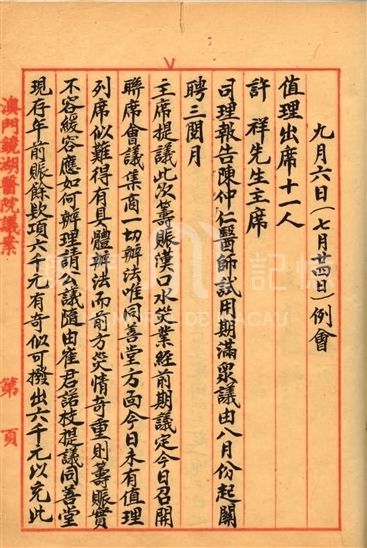 九月六日(七月廿四日)例會
值理出席十一人
許祥先生主席
司理報告陳仲仁醫師試用期滿衆議由八月份起關
聘三閱月
主席提議此次籌賑漢口水災業經前期議定今日召開
聯席會議集商一切辦法唯同善堂方面今日未有值理
列席似難得有具體辦法而前方災情奇重則籌賑實
不容緩容應如何辦理請公議隨由崔君諾枝提議同善堂
現存年前賑餘欵項六千元有奇似可撥出六千元以充此
澳門鏡湖醫院議案 第 頁
記憶
MACAU